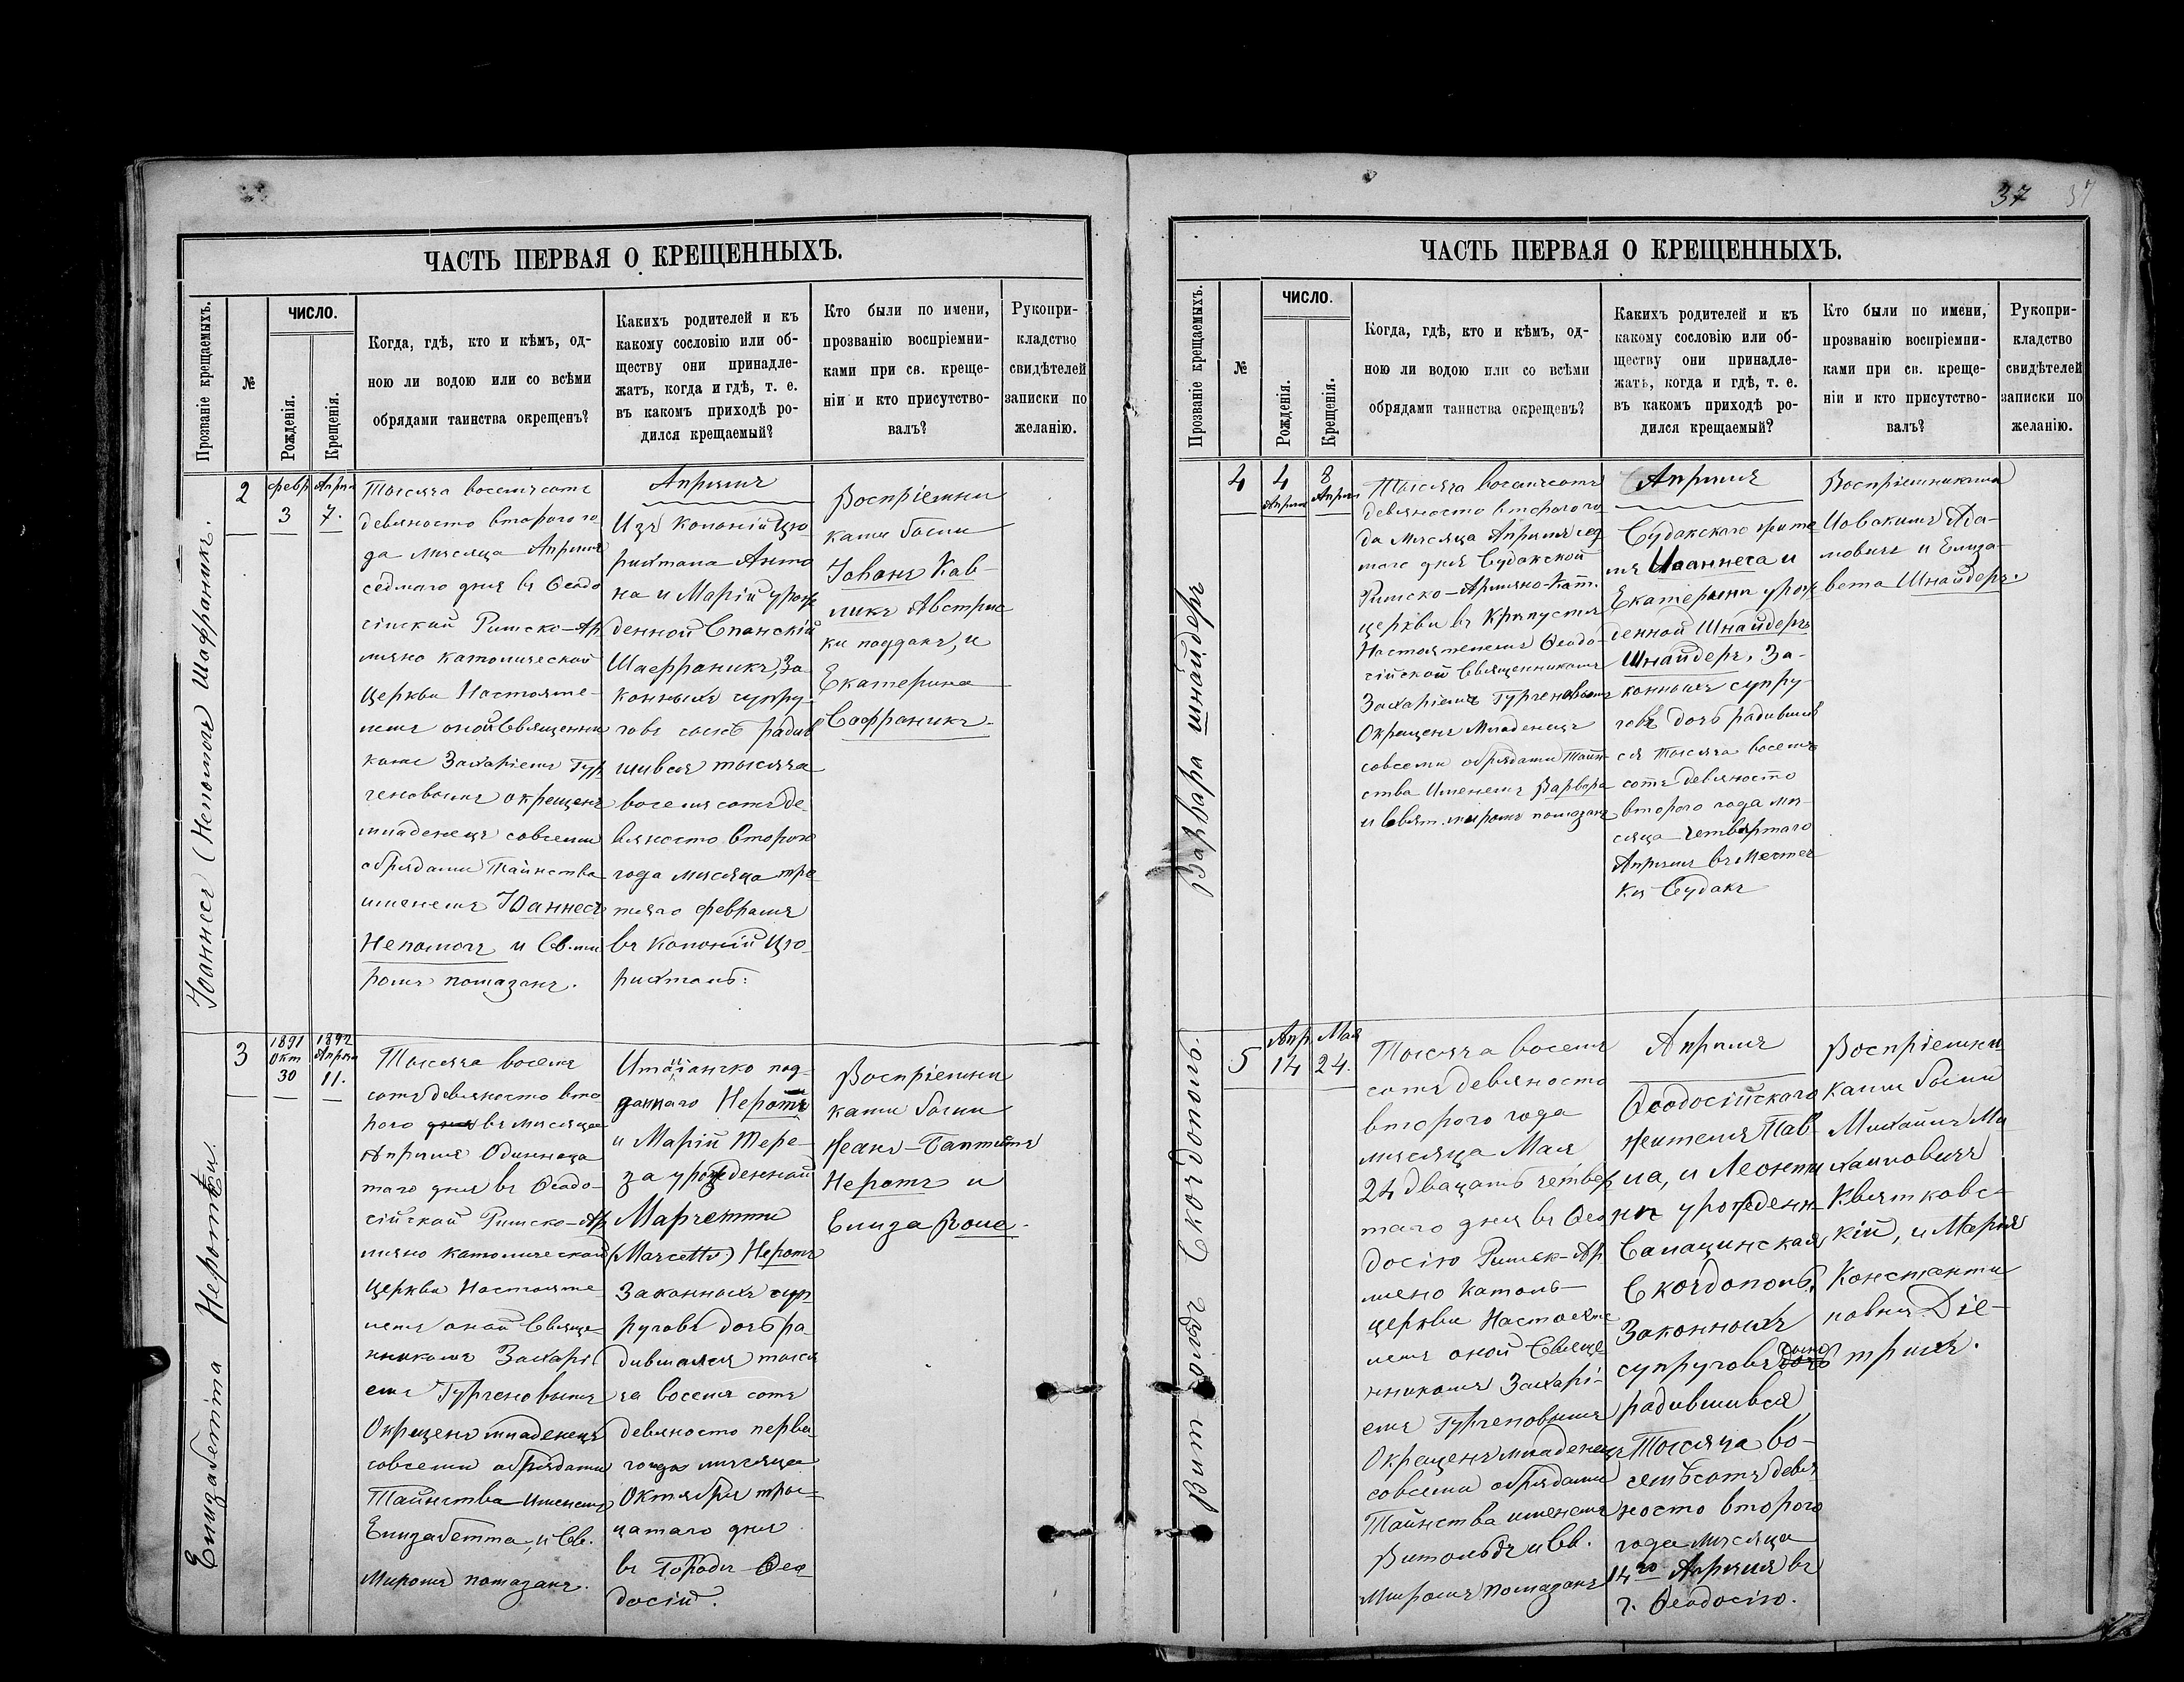 37 37
ЧАСТЬ ПЕРВАЯ О КРЕЩЕННЫХЪ.
Прозваніе крещаемыхъ.
№
ЧИСЛО.
Рожденія.
Крещенія.
Когда, гдѣ, кто и кѣмъ, од-
ною ли водою или со всѣми
обрядами таинства окрещенъ?
Какихъ родителей и къ
какому сословію или об-
ществу они принадле-
жатъ, когда и гдѣ, т. е.
въ какомъ приходѣ ро-
дился крещаемый?
Кто были по имени,
прозванію воспріемни-
ками при св. креще-
ніи и кто присутство-
валъ?
Рукопри-
кладство
свидѣтелей
записки по
желанію.
Іоаннесъ (Непомогъ Шафраникъ.
2
февр
3
Апрѣл
7.
Тысяча восемьсотъ
девяносто второго го
да мѣсяца Апрѣля
седмаго дня въ Ѳеодо
сійской Римско-Ар
мяно католической
Церкви Настояте-
лемъ оной Священни
комъ Захаріемъ Гур
геновымъ окрещенъ
младенецъ совсеми
обрядами Таинства
именемъ Іоаннесъ
Непомогъ и Св. ми
ромъ помазанъ.
Апрѣля
Изъ Колоній Цю
рихталя Анто
на и Маріи урож
денной Спанскій
Шафраникъ, За
конныхъ супру
говъ сынъ радив
шився тысяча
восемь сотъ де
вяносто второго
года мѣсяца тре
тяго февраля
въ Колоній Цю
рихталь:
Воспріемни
ками были
Іоhанъ Кав-
ликъ Австрис
ки подданъ, и
Екатерина
Сафраникъ.
Елизабетта Неротти.
3
1891
Окт
30
1892
Апрѣл
11.
Тысяча восемь
сотъ девяносто вто
рого дня въ мѣсяцъ
Апрѣля Одинназа
таго дня въ Ѳеодо-
сійской Римско-Ар
мяно католической
Церкви Настояте
лемъ оной Свяще
нникомъ Захарі
емъ Гургеновымъ
Окрещенъ младенецъ
совсеми обрядами
Таинства Именемъ
Елизабетта, и Св.
Миромъ помазанъ.
Италіанско под-
даннаго Неротъ
и Маріи Тере-
за урожденной
Марчетти
(Marcetti) Неротъ
Законныхъ суп
руговъ дочь ра
дившаяся тыся
ча восемь сотъ
девяносто перва
го года мѣсяца
Октября трис
цатаго дня
въ Городѣ Ѳео
досій.
Воспріемни
ками были
Жеанъ-Баптистъ
Неротъ и
Елиза Роше.
ЧАСТЬ ПЕРВАЯ О КРЕЩЕННЫХЪ.
Прозваніе крещаемыхъ.
№
ЧИСЛО.
Рожденія.
Крещенія.
Когда, гдѣ, кто и кѣмъ, од-
ною ли водою или со всѣми
обрядами таинства окрещенъ?
Какихъ родителей и къ
какому сословію или об-
ществу они принадле-
жатъ, когда и гдѣ, т. е.
въ какомъ приходѣ ро-
дился крещаемый?
Кто были по имени,
прозванію воспріемни-
ками при св. креще-
ніи и кто присутство-
валъ?
Рукопри-
кладство
свидѣтелей
записки по
желанію.
Варвара шнайдеръ
4
4
Апрѣля
8
Апрѣл
Тысяча восемьсотъ
девяносто второго го
да мѣсяца Апрѣля
таго дня Судакской
Римско-Армяно-Кат.
церкви въ
Настоятелемъ Ѳеодо-
сійской Священникомъ
Захаріемъ Гургеновымъ
Окрещенъ младенецъ
совсеми обрядами Таин
ства Именемъ Варвара
и Свят. миромъ помазанъ
Апрѣля
Судакскаго жите
ля Иоаннеса и
Екатерини урож
денной Шнайдеръ
Шнайдеръ, За-
конныхъ супру
говъ дочь радивша
ся тысяча восемь
сотъ девяносто
второго года мѣ
сяца четвертаго
Апрѣля въ Местеч
кѣ Судакъ
Воспріемниками
Иовакимъ Ада-
мовичъ и Елиза
вета Шнайдеръ.
Витольдъ Скочдополь.
5
Апр
14
Мая
24.
Тысяча восемь
сотъ девяносто
второго года
мѣсяца Мая
24 двацать четвер
таго дня въ Ѳео
досію Римск-Ар
мяно Католь
церкви Настояте
лемъ оной Свяще
нникомъ Захарі-
емъ Гургеновымъ
Окрещенъ младенецъ
совсеми обрядами
Таинства именемъ
Витольдъ и Св.
Миромъ помазанъ
Апрѣля
Ѳеодосійскаго
жителя Пав
ла, и Леонти
ни урожденн
Салацинская
Скочдополь,
Законныхъ
супруговъ дочь сынъ
радившився
Тысяча во-
семьсотъ девя
носто второго
года мѣсяца
14го Апрѣля въ
г. Ѳеодосію.
Воспріемни
ками были
Михаилъ Ми
хаиловичъ
Квятковс-
кій, и Марія
Константи
новна Діе-
трихъ.